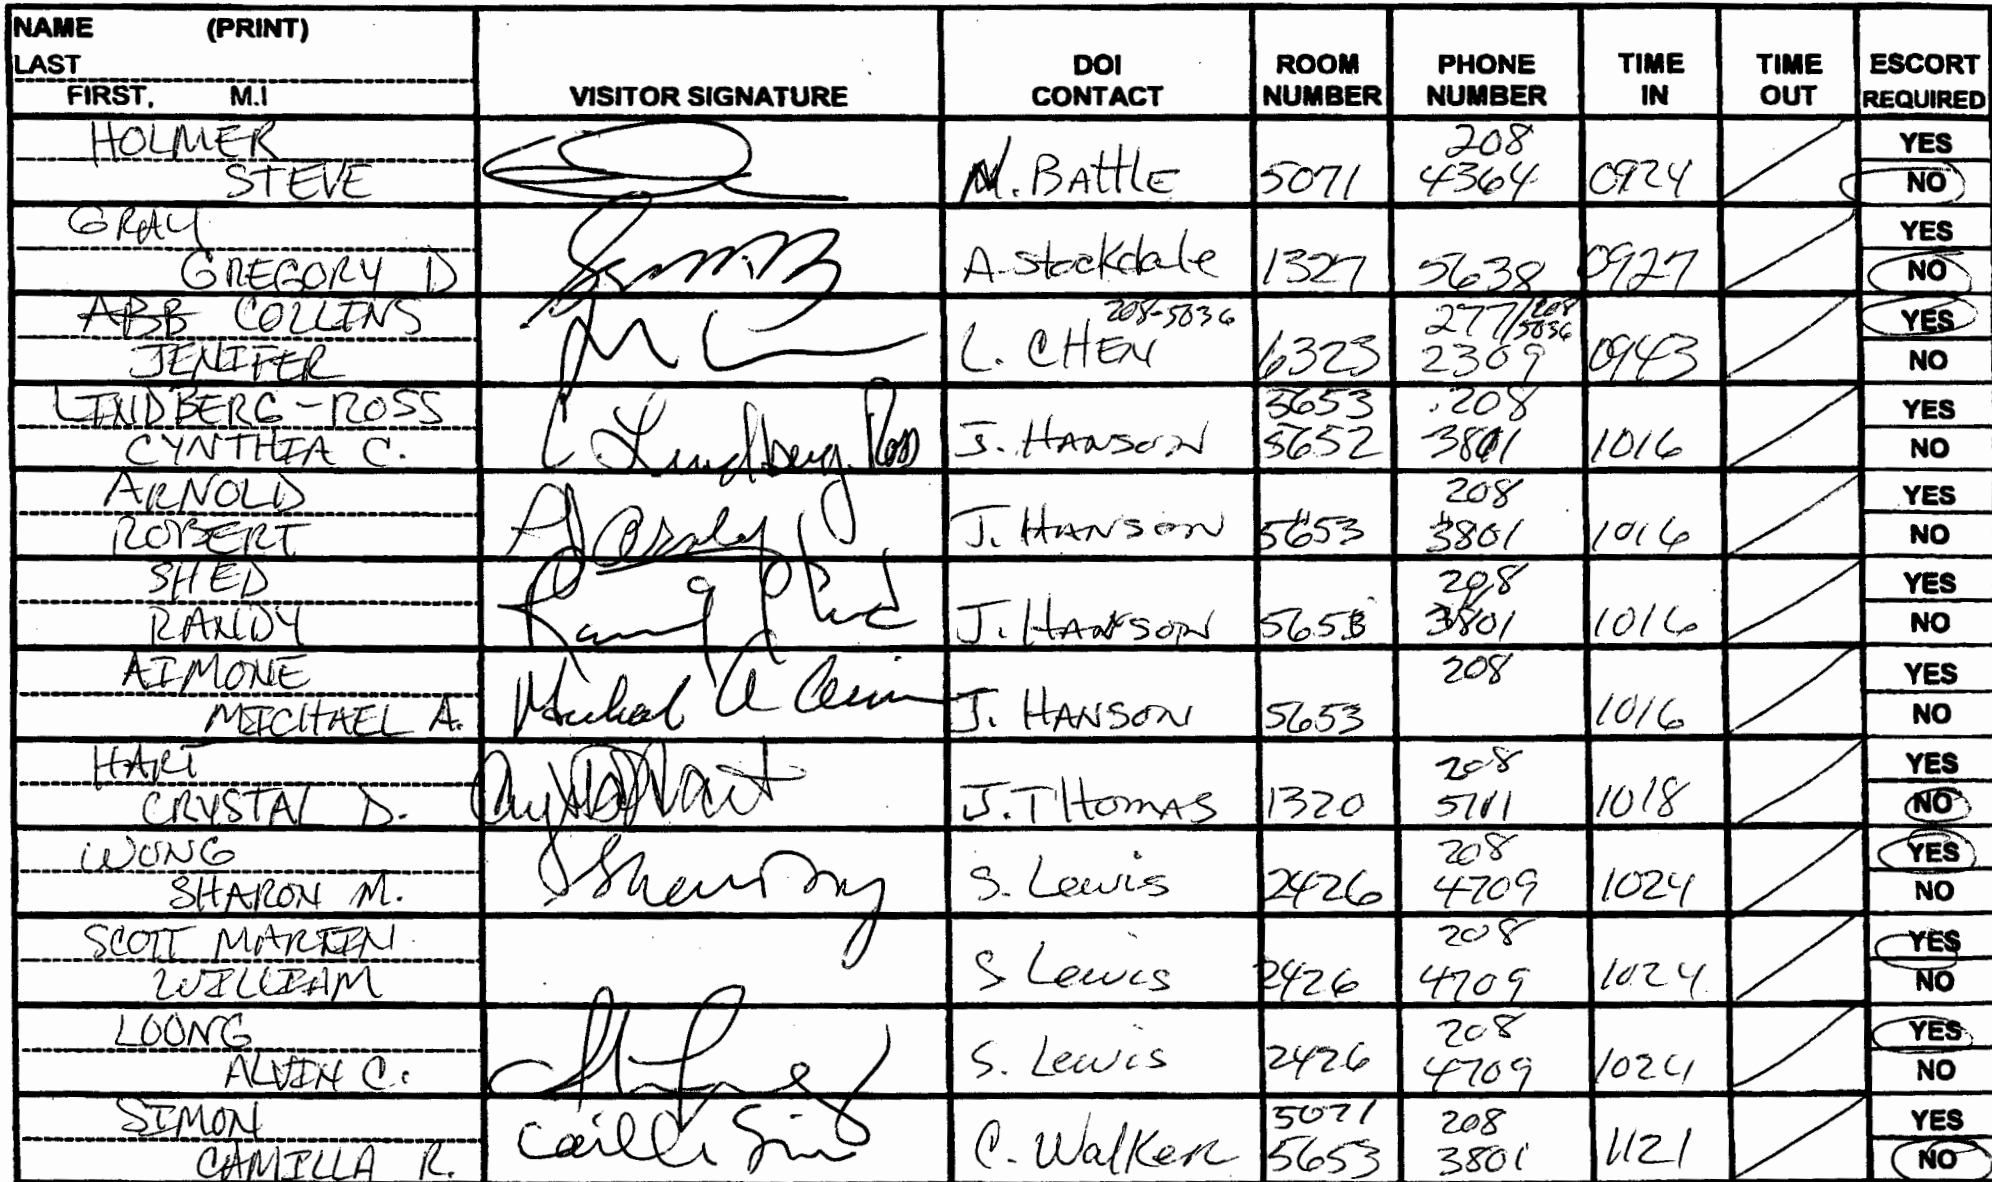 NAME (PRINT)
LAST
FIRST, M.I
VISITOR SIGNATURE
DOI CONTACT
ROOM NUMBER
PHONE NUMBER
TIME IN
TIME OUT
ESCORT REQUIRED
HOLMER
STEVE
M. BATTLE 5071 208 4364 0924 YES NO
GRAY
GREGORY D
A. Stockdale 1327 5638 0927 YES NO
ABB COLLINS
JENIFER
L. CHEN 208-5036 6323 277/208 5036 2309 0943 YES NO
LINDBERG-ROSS
CYNTHIA C.
C Lindberg Ross J. HANSON 3653 5652 208 3801 1016 YES NO
ARNOLD
ROBERT
J. HANSON 5653 208 3801 1016 YES NO
SHED
RANDY
J. HANSON 5653 208 3801 1016 YES NO
AIMONE
MICHAEL A.
Michael A J. HANSON 5653 208 1016 YES NO
HART
CRYSTAL D.
J. THOMAS 1320 208 5711 1018 YES NO
WONG
SHARON M.
S. Lewis 2426 208 4709 1024 YES NO
SCOTT MARTIN
WILLIAM
S. Lewis 2426 208 4709 1024 YES NO
LOONG
ALVIN C.
S. Lewis 2426 208 4709 1024 YES NO
SIMON
CAMILLA R.
C. Walker 5071 5653 208 3801 1121 YES NO